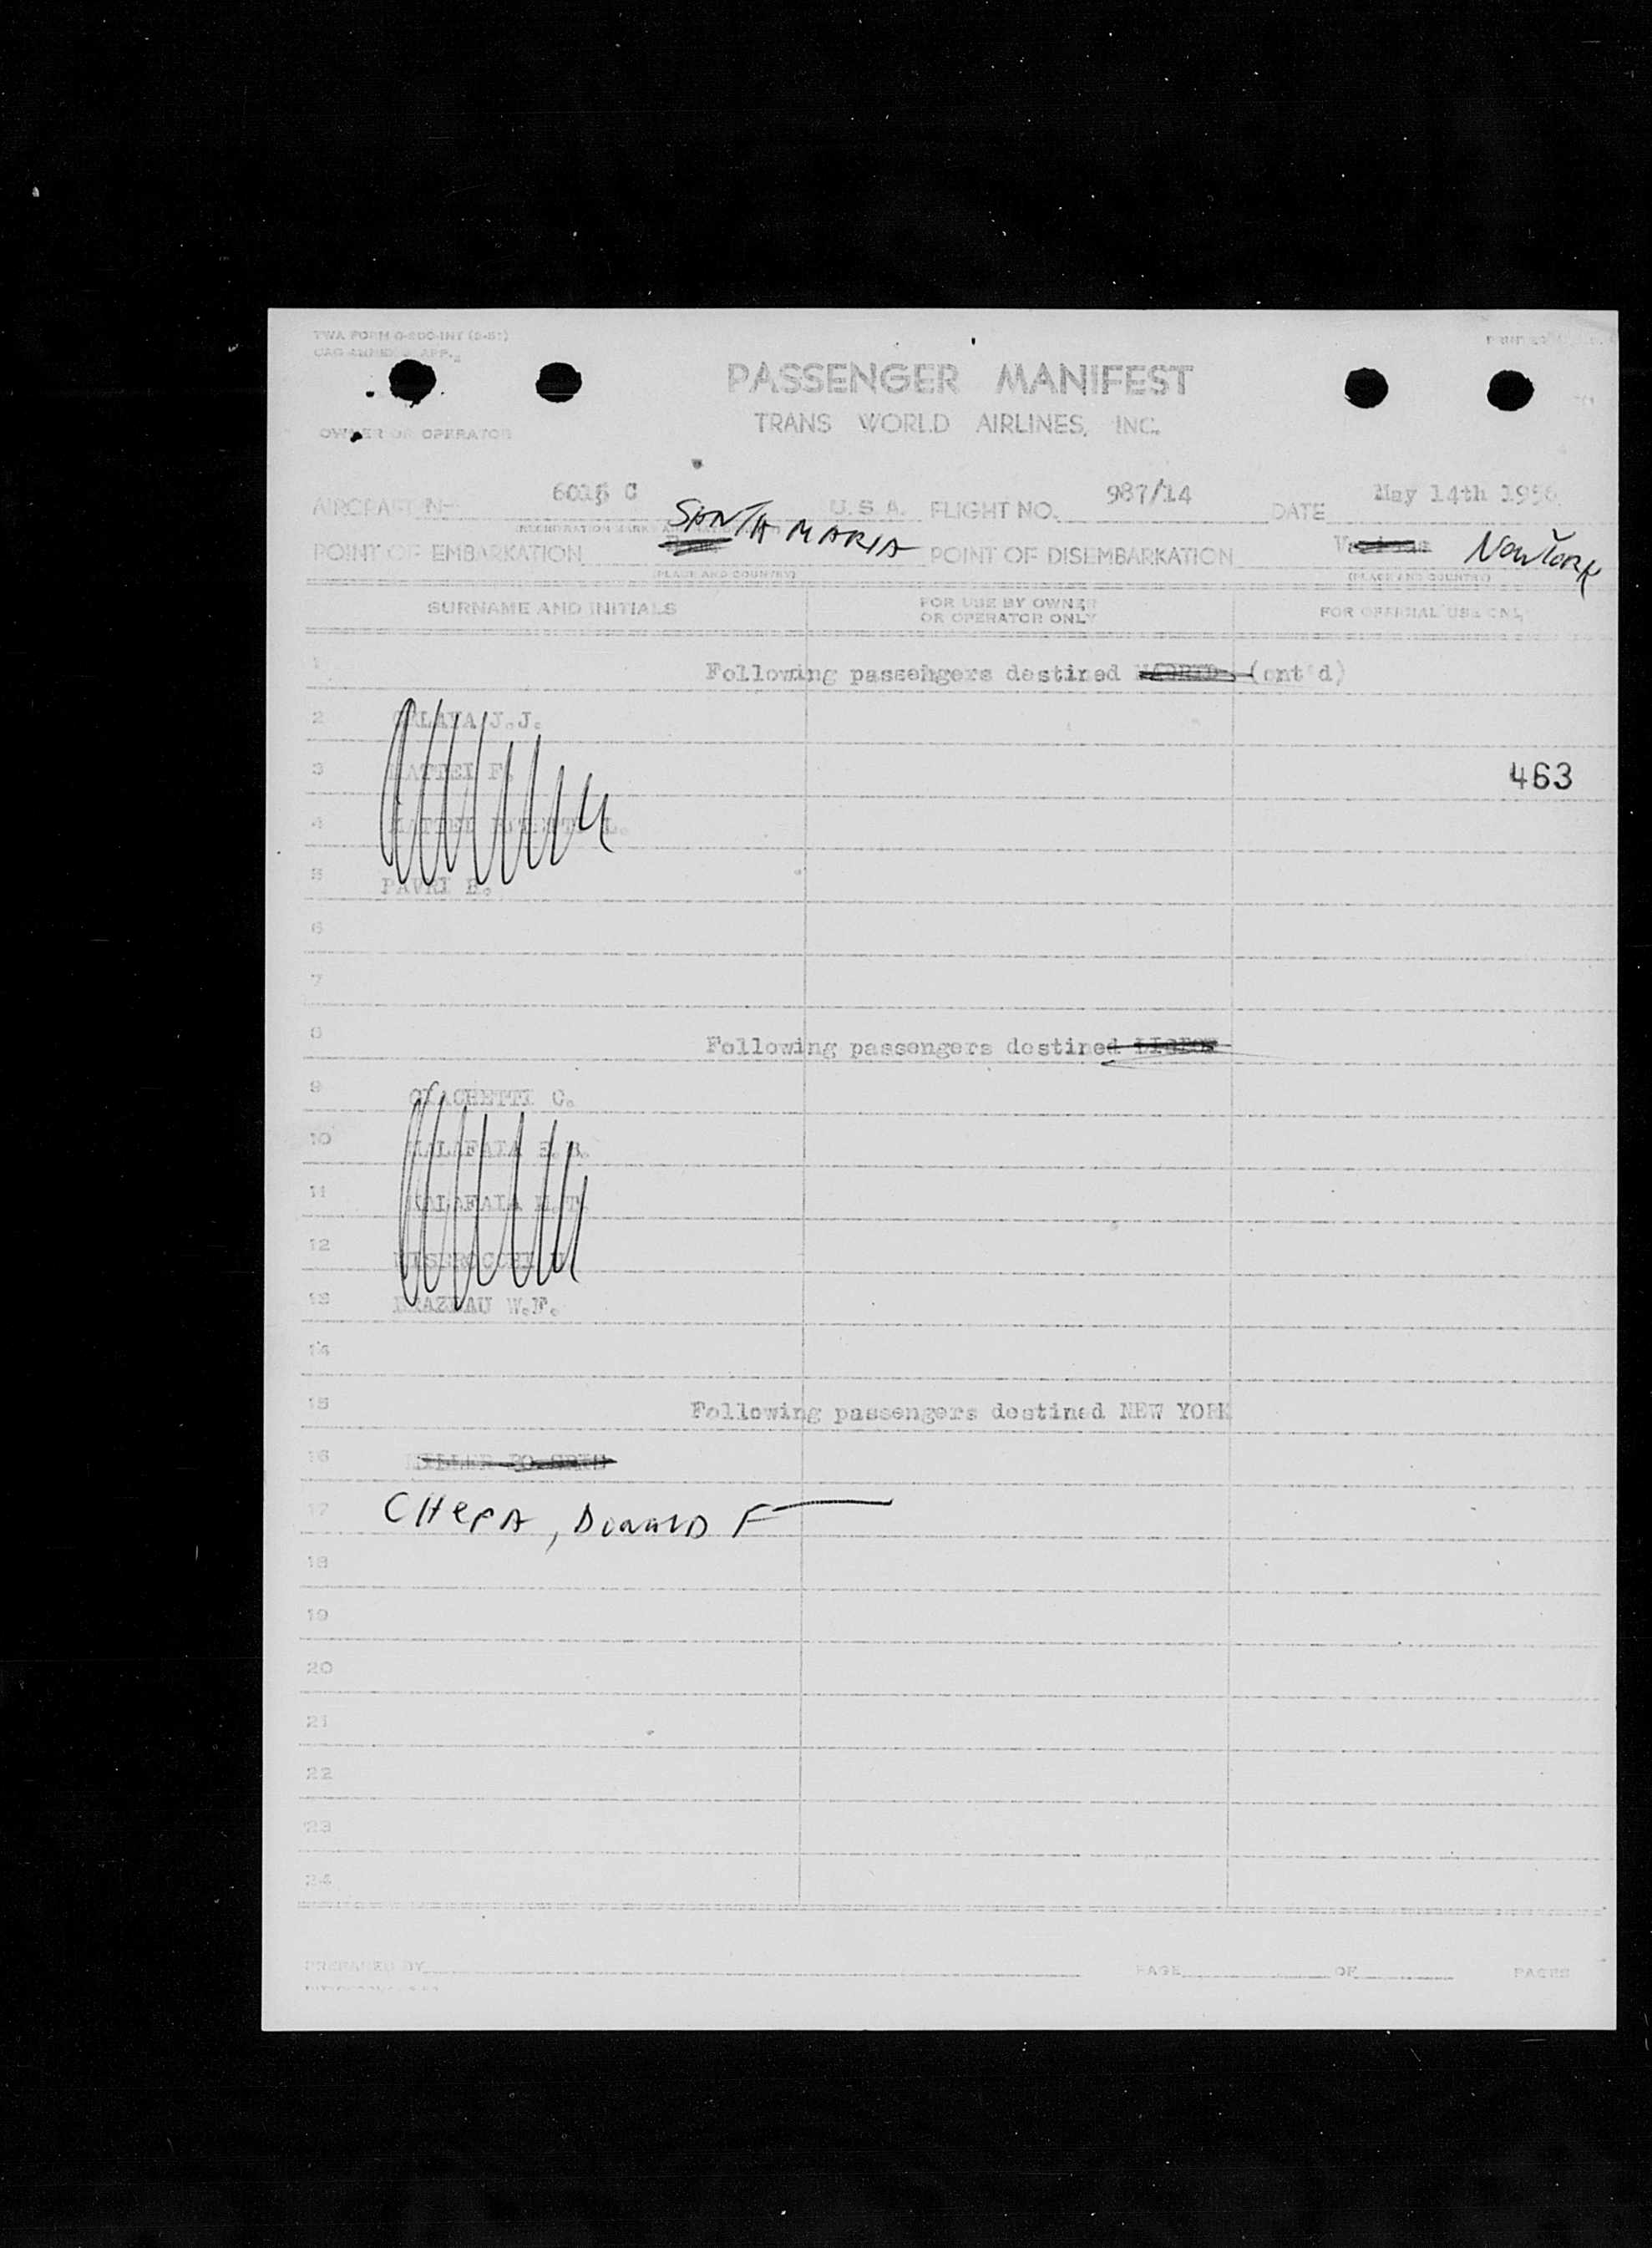 TWA FORM O-800-INT (5-51)
PASSENGER MANIFEST
TRANS WORLD AIRLINES, INC.
OWNER OR OPERATOR
AIRCRAFT N- 6015 C U.S.A. FLIGHT NO. 987/14 DATE May 14th 1956
POINT OF EMBARKATION SANTA MARIA POINT OF DISEMBARKATION New York
(PLACE AND COUNTRY) (PLACE AND COUNTRY)
SURNAME AND INITIALS FOR USE BY OWNER OR OPERATOR ONLY FOR OFFICIAL USE ONLY
1 Following passengers destined MADRID (ont'd)
2 J.J.
3 MATTEI F.
463
4 MATTEI
5 PAVRI E.
6
7
8 Following passengers destined LISBON
9 GIACHETTI C.
10 MALAFAIA E.B.
11 MALAFAIA M.T.
12
13 BRAZEAU W.F.
14
15 Following passengers destined NEW YORK
16
17 CHEPA, DONALD F
18
19
20
21
22
23
24
PREPARED BY PAGE OF PAGES